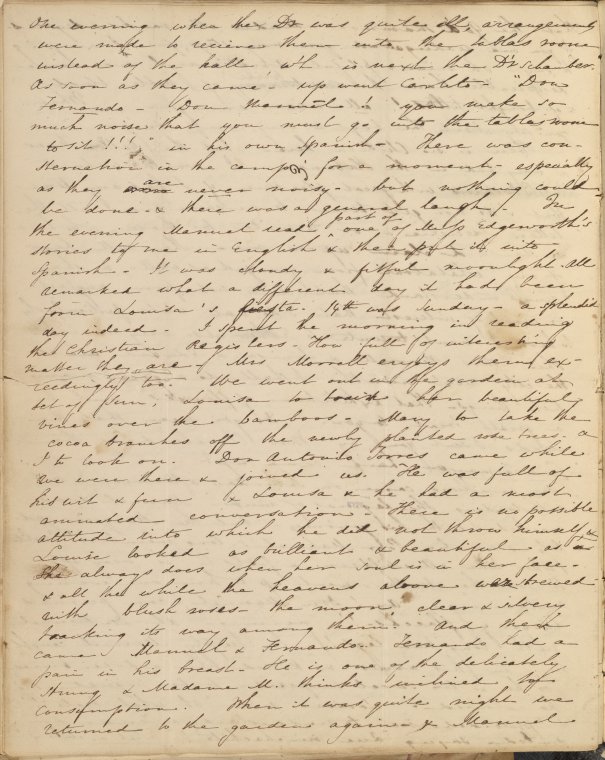 One evening when the Dr was quite ill, arrangements
were made to recieve them into the tablas room
instead of the hall wh. is next the Dr's chamber.
As soon as they came - up went Carlito - "Don
Fernando - Don Manuel! you make so
much noise that you must go into the tablas room
to sit!!!" in his own Spanish - There was con-
sternation in the camp for a moment - especially
as they are never noisy - but nothing could
be done - & there was a general laugh! In
the evening Manuel read part of one of Miss Edgeworth's
stories to me in English & then put it into
Spanish - It was cloudy & fitful moonlight. All
remarked what a different day it had been
from Louisa's fiesta. 14th was Sunday - a splendid
day indeed - I spent the morning in reading
the Christian Registers - How full of interesting
matter they are - Mrs Morrell enjoys them ex-
ceedingly too. We went out in the garden at
set of sun, Louisa to her beautiful
vines over the bamboos - Mary to take the
cocoa branches off the newly planted rose trees - &
I to look on. Don Antonio Torres came while
we were there & joined us. He was full of
his wit & fun & Louisa & he had a most
animated conversation - There is no possible
attitude into which he did not throw himself &
Louise looked as brilliant & beautiful as
she always does when her soul is in her face -
& all the while the heavens above were strewed
with blush roses - the moon clear & silvery
tracking its way among them! And then
came Manuel & Fernando - Fernando had a
pain in his breast - He is one of the delicately
strung & Madame M. thinks inclined to
consumption. When it was quite night we
returned to the garden again - & Manuel